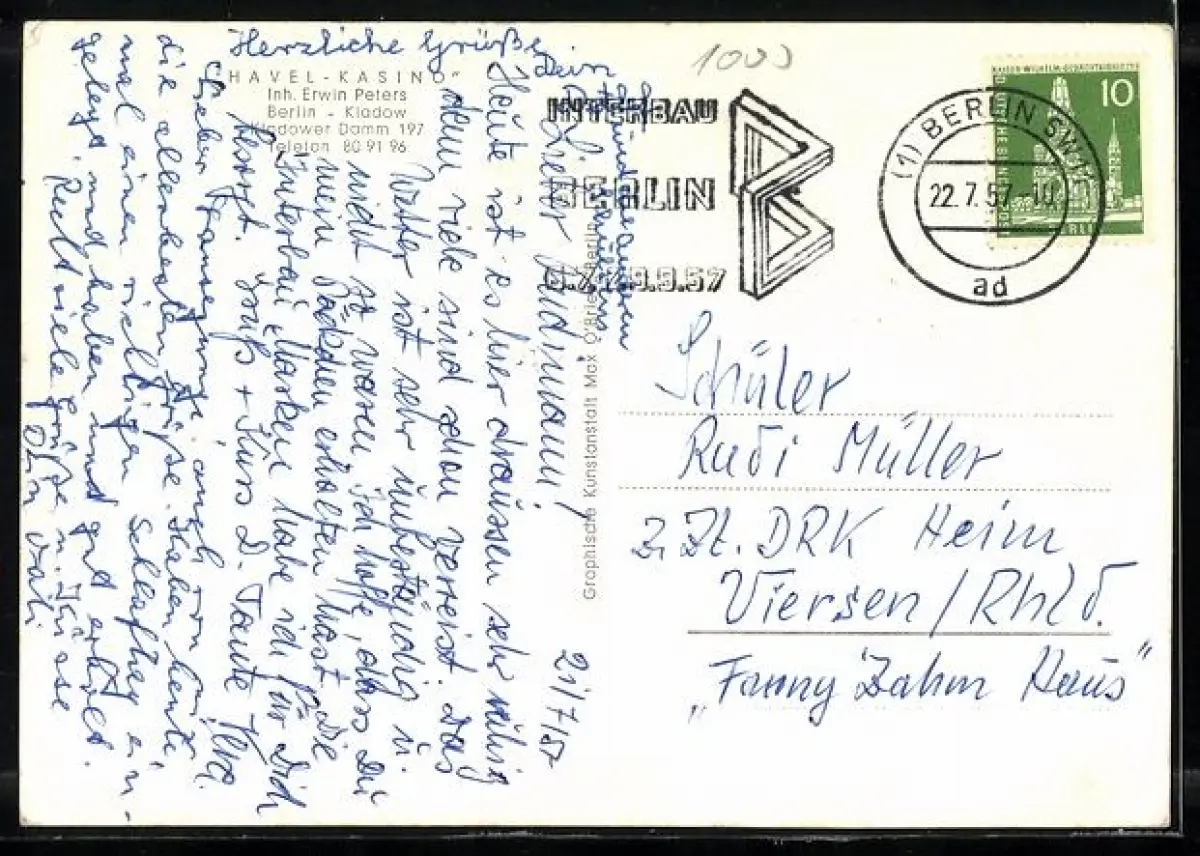 Herzliche Grüße
Dein
"HAVEL-KASINO"
Inh. Erwin Peters
Berlin - Kladow
Kladower Damm 197
Telefon 80 91 96
21/7/57
Lieber Rudimann!
Heute ist es hier draussen sehr ruhig
denn viele sind schon verreist. Das
Wetter ist sehr unbeständig u.
nicht so warm. Ich hoffe, dass Du
mein Päckchen erhalten hast. Die
Interbau Marken habe ich für Dich
besorgt. Gruß + Kuss D. Tante
Lieber auch von mir
die allerbesten Grüße. Haben heute
mal einen richtigen Schlaftag ein-
gelegt und haben und gut erholt.
Recht viele Grüße u. Küsse
Dein Vati
Graphische Kunstanstalt Max O'Brien, Berlin
1003
INTERBAU
BERLIN
6.7.-29.9.57
(1) BERLIN SW 11
22.7.57-10
ad
KAISER-WILHELM-GEDÄCHTNISKIRCHE
10
DEUTSCHE BUNDESPOST
BERLIN
Schüler
Rudi Müller
z. Zt. DRK Heim
Viersen/Rhld.
"Fanny Zahm Haus"